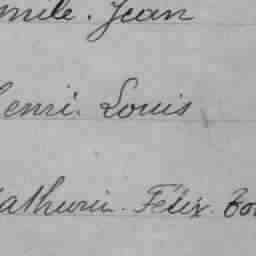 mile. Jean
enri. Louis
athurin. Félix.